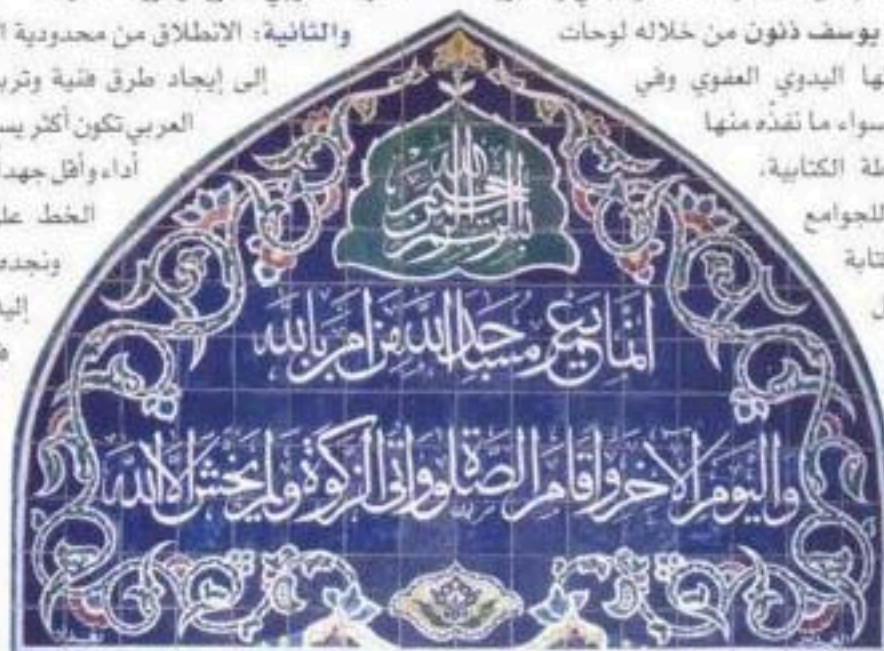 يوسف ذنون من خلاله لوحات
اليدوي العفوي وفي
سواء ما نفذه منها
الكتابية،
للجوامع
والثانية: الانطلاق من محدودية
إلى إيجاد طرق فنية
العربي تكون أكثر
أداء وأقل جهد
الخط
ونجده
بسم الله الرحمن الرحيم
انما يعمر مساجد الله من امن بالله
واليوم الآخر واقام الصلوة واتى الزكوة ولم يخش الا الله
بغداد